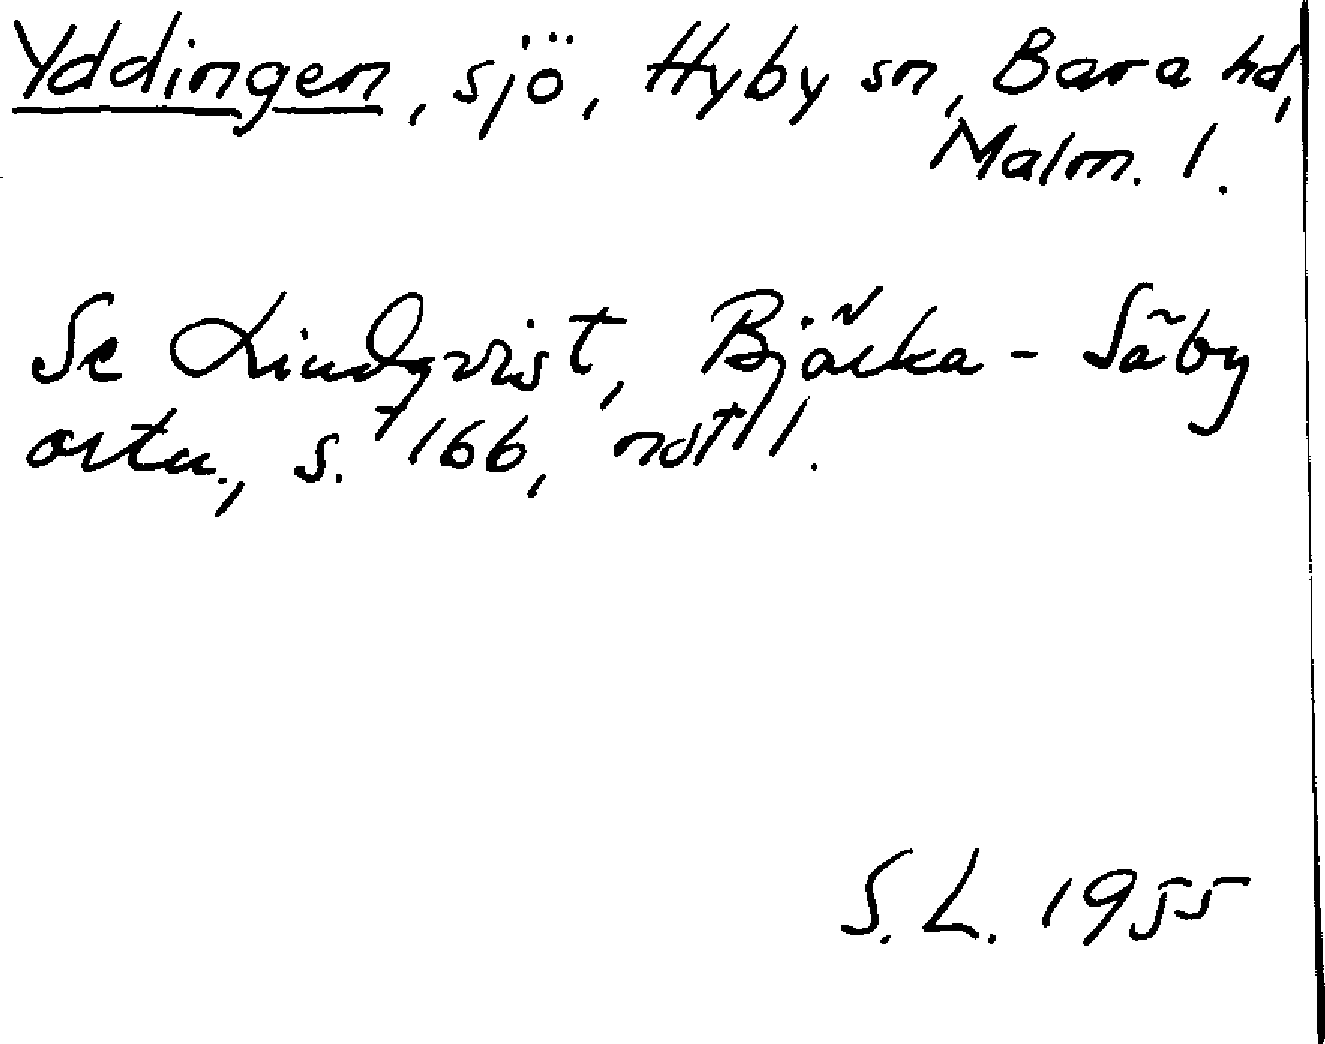 Yddingen, sjö, Hyby sn, Bara hd,
Malm. l.
Se Lindqvist, Bjärka-Säby
ortn., s. 166, not 1.
S. L. 1955